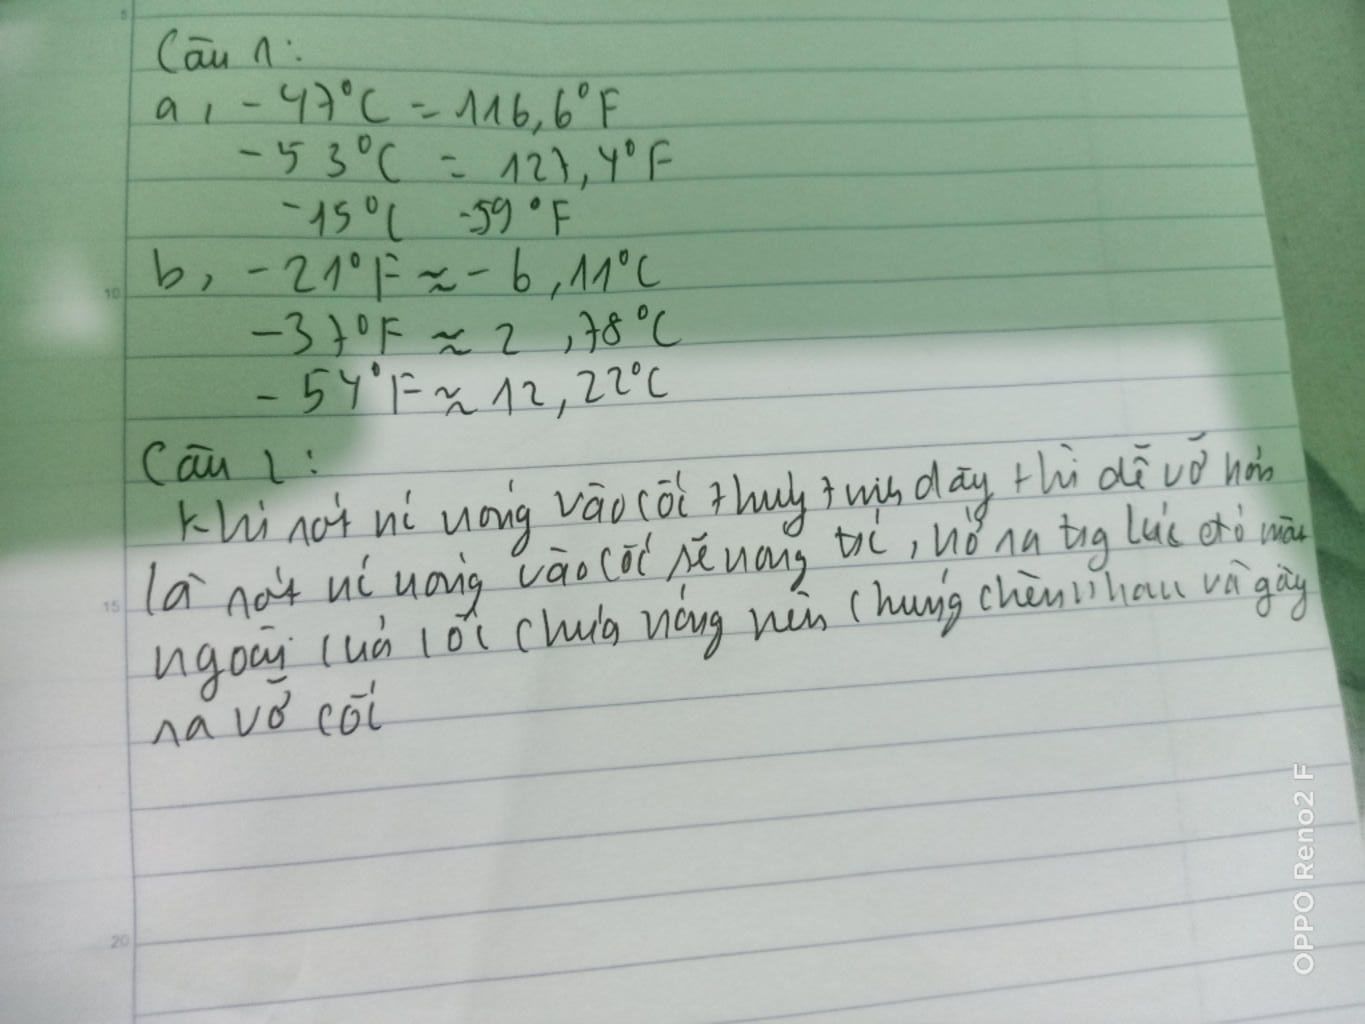 Câu 1:
a, -47°C = 116,6°F
-53°C = 127,4°F
-15°C -59°F
b, -21°F ≈ -6,11°C
-37°F ≈ 2,78°C
-54°F ≈ 12,22°C
Câu 2:
Khi rót nc nóng vào cốc thuỷ tinh dày thì dễ vỡ hơn
là rót nc nóng vào cốc sẽ nóng trc, nở ra trg lúc đó mặt
ngoài của cốc chưa nóng nên chúng chèn nhau và gây
ra vỡ cốc
5
10
15
20
OPPO Reno2 F